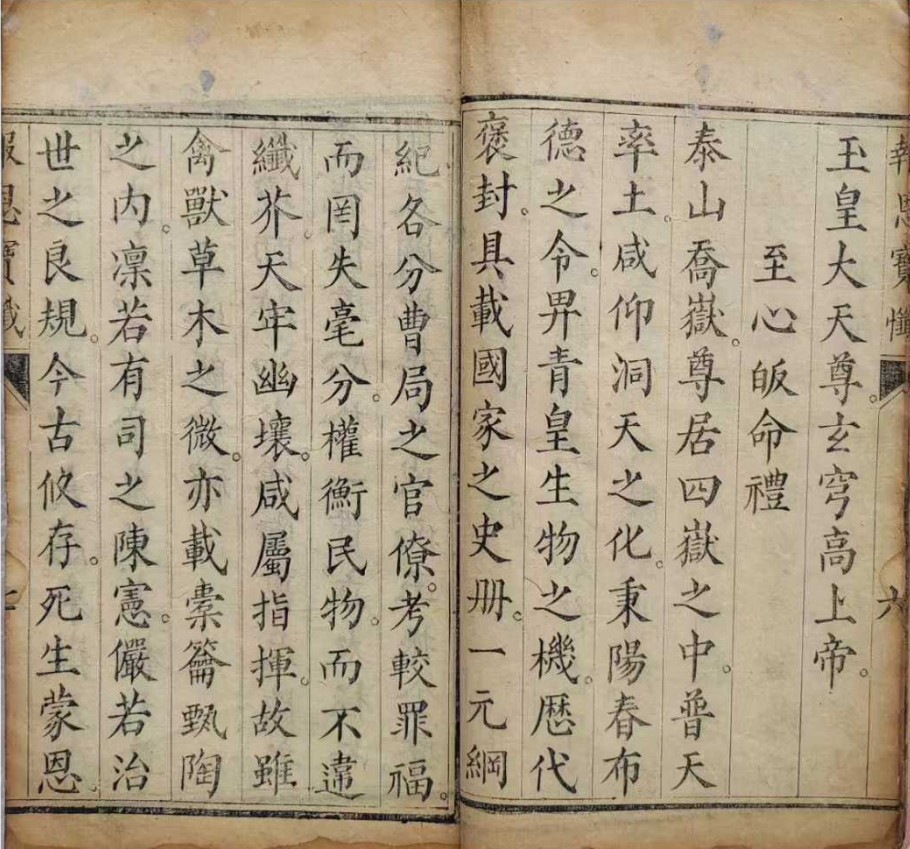 報恩寶懺 六
玉皇大天尊。玄穹高上帝。
至心皈命禮
泰山喬嶽。尊居四嶽之中。普天
率土。咸仰洞天之化。秉陽春布
德之令。畀青皇生物之機。歷代
褒封。具載國家之史册。一元綱
紀各分曹局之官僚。考較罪福。
而罔失毫分。權衡民物。而不違
纖芥天牢幽壤。咸屬指揮。故雖
禽獸草木之微。亦載橐籥甄陶
之内。凛若有司之陳憲。儼若治
世之良規。今古攸存。死生蒙恩。
報恩寶懺